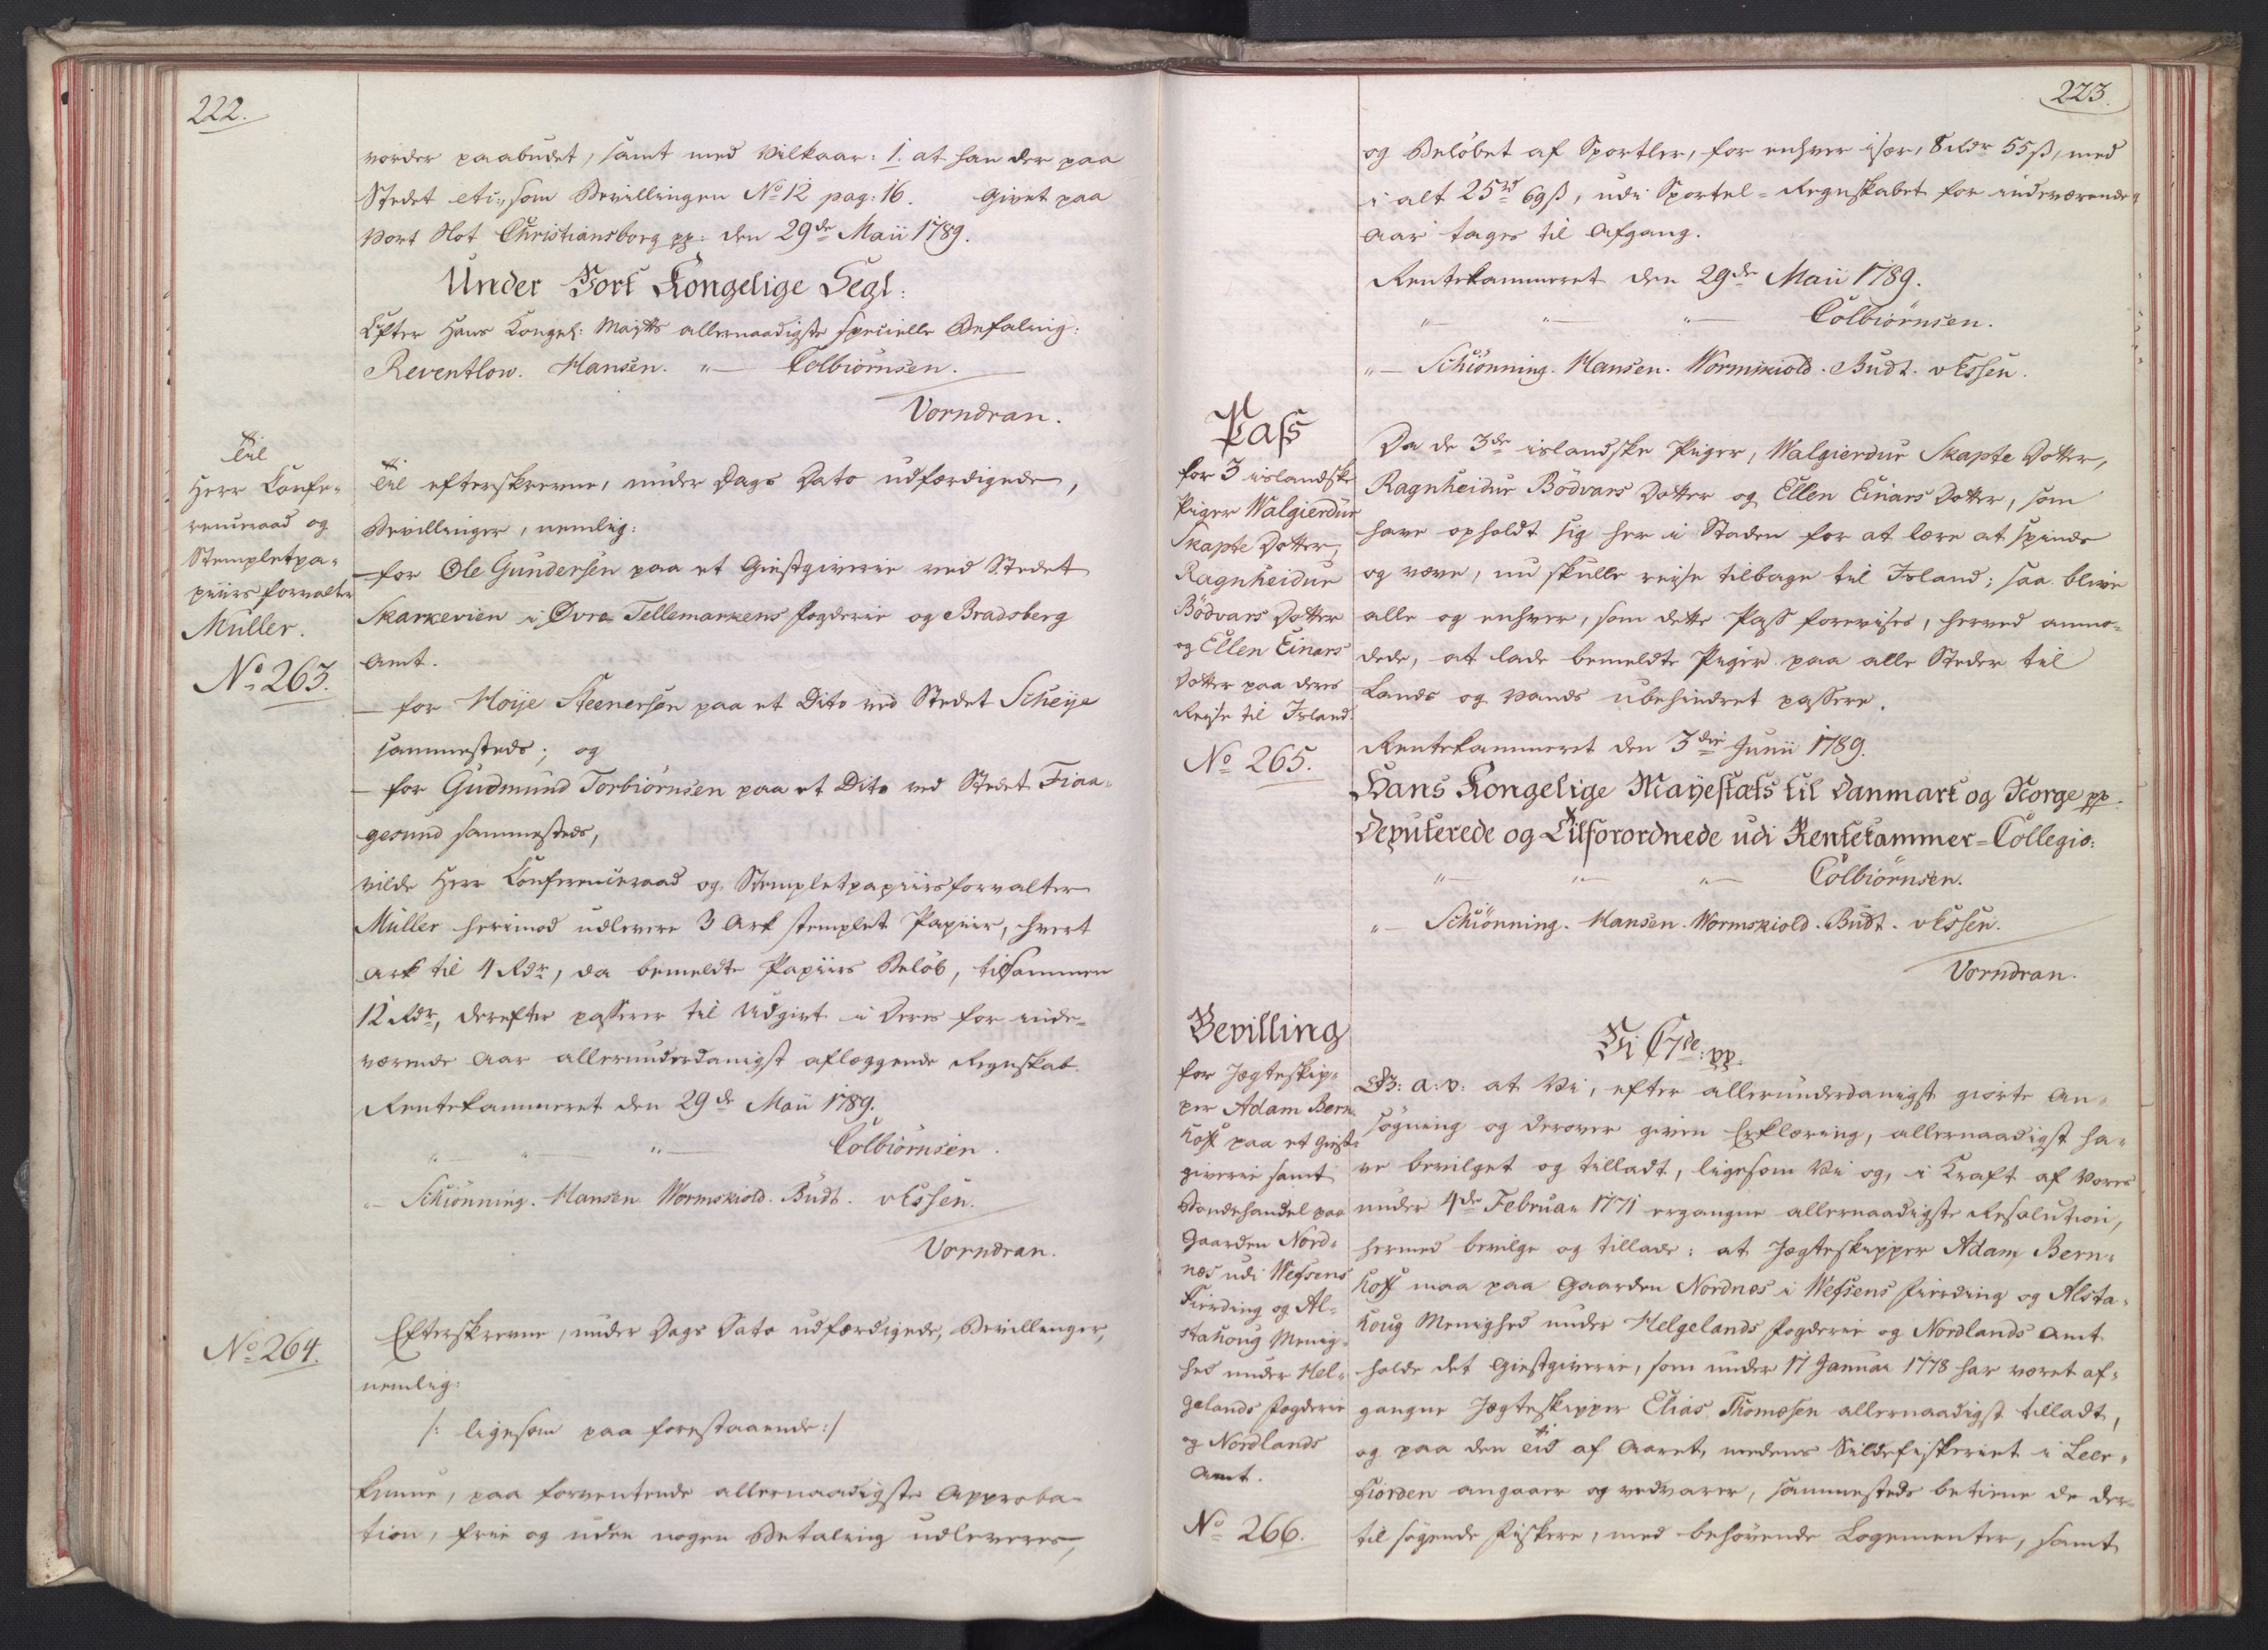 222.
vorder paabudet, samt med Vilkaar: 1. at han der paa
Stedet etc:, som Bevillingen No 12 pag: 16. Givet paa
Vort Slot Christiansborg pp: den 29de Maii 1789.
Under Vort Kongelige Segl:
Efter Hans Kongel: Maytts allernaadigste specielle Befaling:
Reventlow. Hansen. "— Colbiörnsen.
Vorndran.
Til
Herr Confe-
renceraad og
Stempletpa-
piirsforvalter
Müller.
No 263.
Til efterskrevne, under Dags Dato udfærdigede,
Bevillinger, nemlig:
— for Ole Gundersen paa et Giestgiverie ved Stedet
Skarkevien i Øvre Tellemarkens Fogderie og Bradsberg
Amt.
— for Hoije Steenersen paa et Dito ved Stedet Scheije
sammesteds; og
— for Gudmund Torbiörnsen paa et Dito ved Stedet Fiaa-
gesund sammesteds,
vilde Herr Conferenceraad og Stempletpapiirsforvalter
Müller herimod udlevere 3 Ark stemplet Papiir, hvert
Ark til 4 Rdr, da bemeldte Papiirs Beløb, tilsammen
12 Rdr, derefter passerer til Udgivt i Deres for inde-
værende Aar allerunderdanigst aflæggende Regnskab.
Rentekammeret den 29de Maii 1789.
" "— "— Colbiörnsen.
"— Schiönning. Hansen. Wormskiold. Budt. v Essen.
Vorndran.
No 264.
Efterskrevne, under Dags Dato udfærdigede, Bevillinger,
nemlig:
/: ligesom paa forestaaende :/
kunne, paa forventende allernaadigste Approba-
tion, frie og uden nogen Betaling udleveres,
223.
og Beløbet af Sportler, for enhver især, 8 Rdr 55 ß, med
i alt 25 rd 69 ß, udi Sportel-Regnskabet for indeværende
Aar tages til Afgang.
Rentekammeret den 29de Maii 1789.
"— "— "— Colbiörnsen.
"— Schiönning. Hansen. Wormskiold. Budt. v Essen.
Pass
for 3 islandske
Piger Walgierdur
Skapte Dotter,
Ragnheidur
Bödvars Dotter
og Ellen Einars
Dotter paa deres
Reyse til Island.
No 265.
Da de 3de islandske Piger, Walgierdur Skapte Dotter,
Ragnheidur Bödvars Dotter og Ellen Einars Dotter, som
have opholdt sig her i Staden for at lære at spinde
og væve, nu skulle reyse tilbage til Island; saa blive
alle og enhver, som dette Pass forevises, herved anmo-
dede, at lade bemeldte Piger paa alle Steder til
Lands og Vands ubehindret passere.
Rentekammeret den 3die Junii 1789.
Hans Kongelige Mayestæts til Danmark og Norge pp.
Deputerede og Tilforordnede udi Rentekammer-Collegio:
"— "— "— Colbiörnsen.
"— Schiönning. Hansen. Wormskiold. Budt. v Essen.
Vorndran.
Bevilling
for Jægteskip-
per Adam Bern-
hoft paa et Giest-
giverie samt
Bondehandel paa
Gaarden Nord-
næs udi Wefsens
Fierding og Al-
stahoug Menig-
hed under Hel-
gelands Fogderie
og Nordlands
Amt.
No 266.
Vi C 7de: pp.
G: A: V: at Vi, efter allerunderdanigst giorte An-
søgning og derover given Erklæring, allernaadigst ha-
ve bevilget og tilladt, ligesom Vi og, i Kraft af Vores
under 4de Februar 1771 ergangne allernaadigste Resolution,
hermed bevilge og tillade: at Jægteskipper Adam Bern-
hoft maa paa Gaarden Nordnæs i Wefsens Fierding og Alsta-
houg Menighed under Helgelands Fogderie og Nordlands Amt
holde det Giestgiverie, som under 17 Januar 1778 har været af-
gangne Jægteskipper Elias Thomæsen allernaadigst tilladt,
og paa den Tid af Aaret, medens Sildefiskeriet i Leer-
fiorden angaaer og vedvarer, sammesteds betiene de der-
til søgende Fiskere, med behøvende Logementer, samt